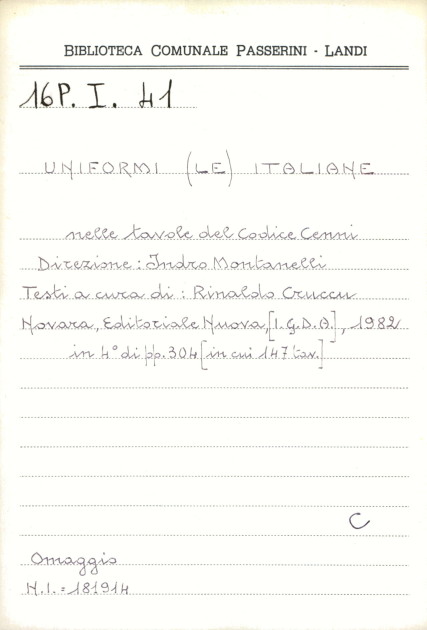 BIBLIOTECA COMUNALE PASSERINI - LANDI
16P. I. 41
UNIFORMI (LE) ITALIANE
nelle tavole del Codice Cenni
Direzione : Indro Montanelli
Testi a cura di : Rinaldo Cruccu
Novara, Editoriale Nuova, [I.G.D.A.], 1982
in 4° di pp. 304 [in cui 147 tav.]
C
Omaggio
N.I. = 181914